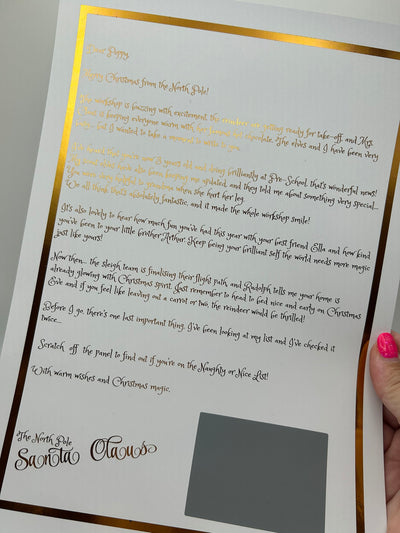 Dear Poppy,
Happy Christmas from the North Pole!
My workshop is buzzing with excitement, the reindeer are getting ready for take-off and Mrs
Claus is keeping everyone warm with her hot chocolate. The elves and I have been very
but I wanted to take a moment to write to you.
you're now 3 years old and doing brilliantly at Pre-School, that's wonderful news!
My elves have also been keeping me updated, and they told me about something very special...
You were very helpful to grandma when she hurt her leg.
We all think that's absolutely fantastic, and it made the whole workshop smile!
It's also lovely to hear how much fun you've had this year with your best friend Ella and how kind
you've been to your little brother Arthur. Keep being your brilliant self the world needs more magic
just like yours!
Now then... the sleigh team is finalising their flight path and Rudolph tells me your home is
already glowing with Christmas spirit. Just remember to head to bed nice and early on Christmas
Eve and if you feel like leaving out a carrot or two, the reindeer would be thrilled!
Before I go, there's one last important thing. I've been looking at my list and I've checked it
twice...
Scratch off the panel to find out if you're on the Naughty or Nice List!
With warm wishes and Christmas magic,
The North Pole
Santa Claus